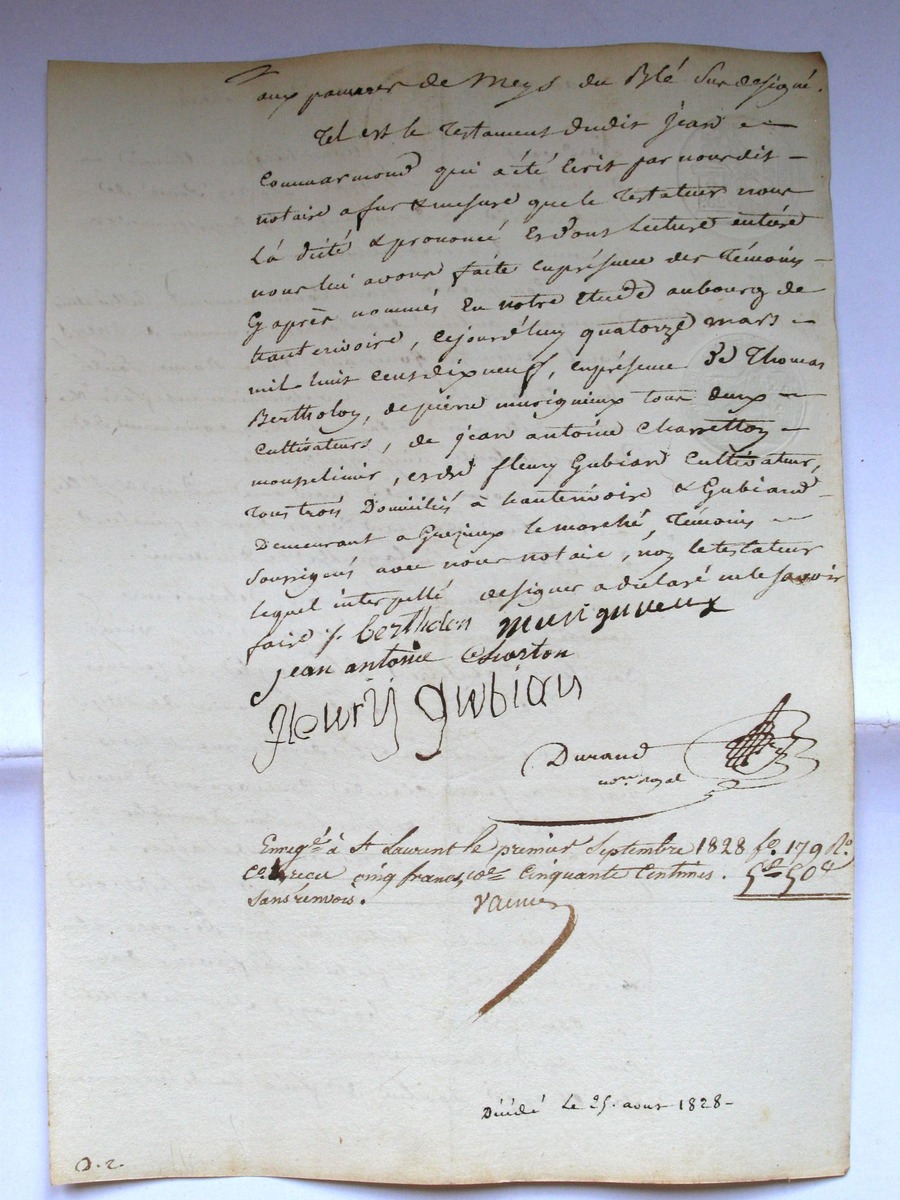 aux pauvres de Meys du Blé Sus designé.
Tel est le Testament dudit Jean
Commarmond qui a été Ecrit par nous dit
notaire a fur & mesure que le Testateur nous
L'a dicté & prononcé Et dont Lecture entière
nous lui avons faite en présence des Témoins
Cy après nommés En notre Etude au bourg de
hauterivoire, cejourd'huy quatorze mars
mil huit Cent dix neuf, en présence De Thomas
Bertholon, de pierre musigneux tous deux
Cultivateurs, de jean antoine Charretton
mousselinier, et de fleury Gubian Cultivateur,
tous trois Domiciliés à hauterivoire & Gubiand
Demeurant a Grezieux le marché, Témoins
Soussignés avec nous notaire, non le testateur
lequel interpellé de signer a déclaré ne le savoir
faire /. bertholon musigneux
jean antoine Charton
fleury gubian
Durand
not.re royal
Enreg.é à St Laurent le premier Septembre 1828 f.o 179 R.o
C.e reçu cinq francs, Cinquante Centimes. 5f 50c
Sans renvois.
Décédé Le 25. aout 1828
D. 2.